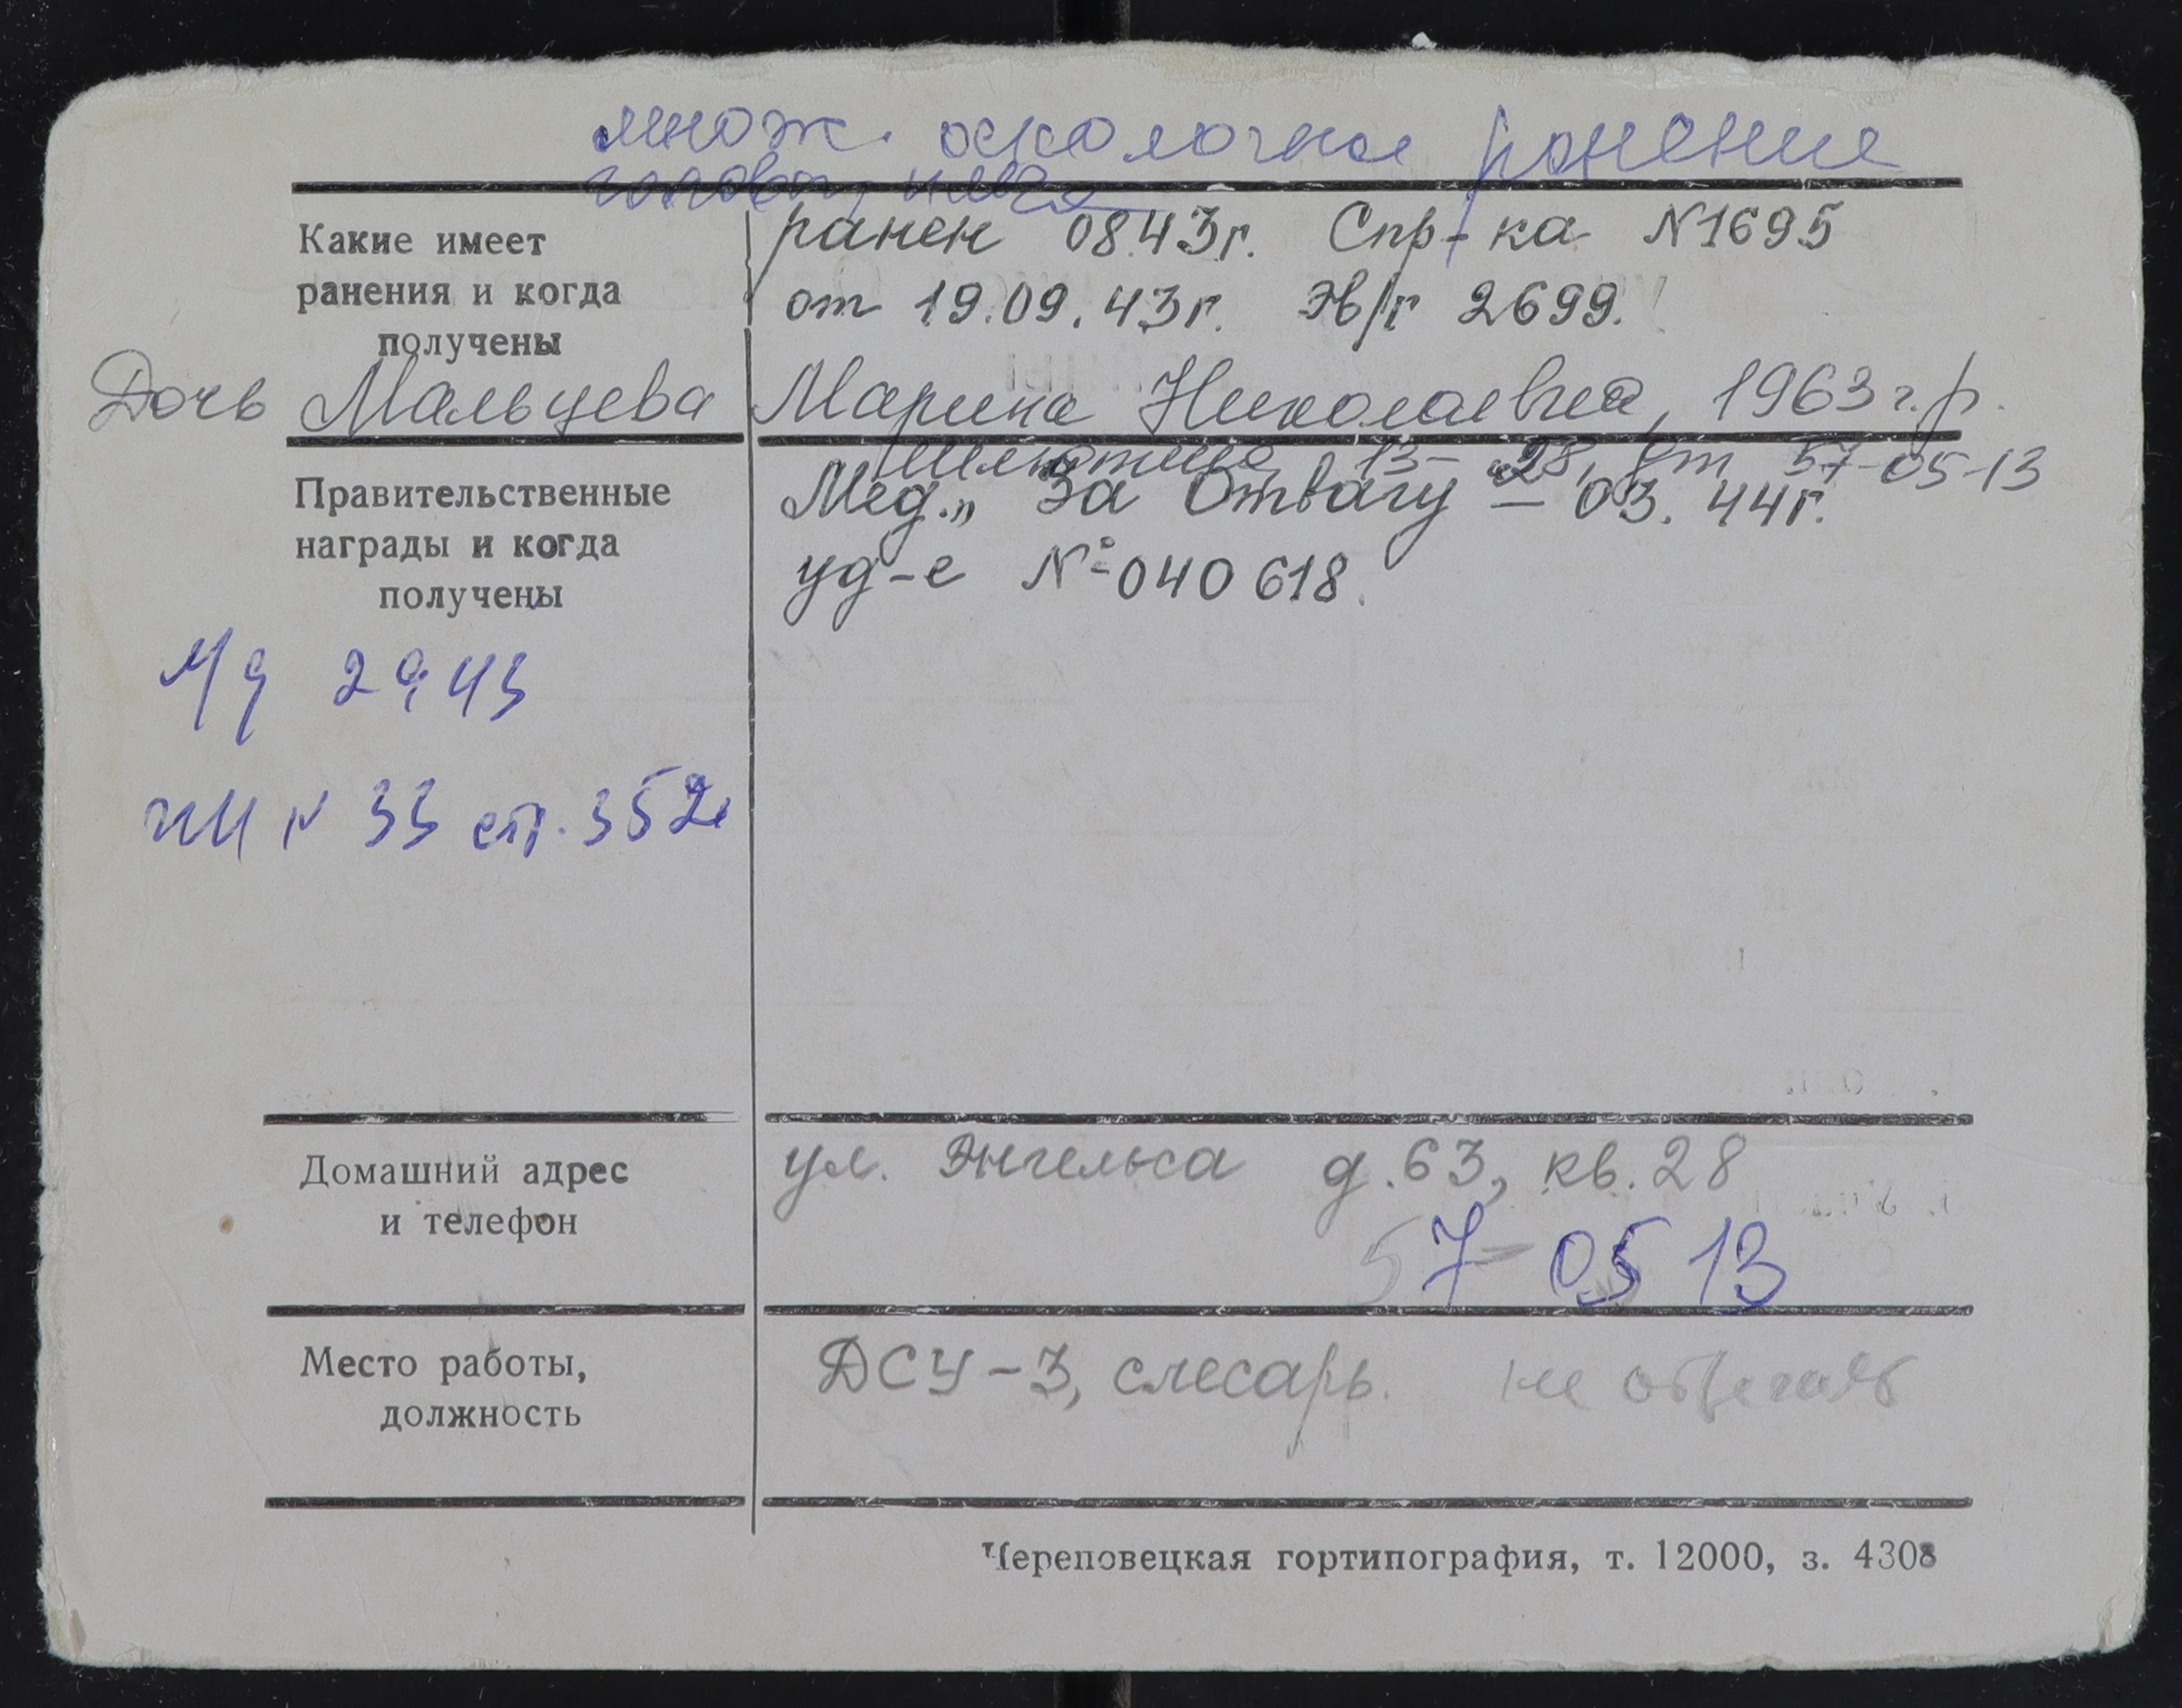 множ. осколочное ранение
головы, плеча
Какие имеет
ранения и когда
получены
ранен 08.43г. Спр-ка N1695
от 19.09.43г. Эв/г 2699.
Дочь Мальцева Марина Николаевна, 1963 г.р.
13-28, 57-05-13
Правительственные
награды и когда
получены
Мед. „За Отвагу" – 03.44г.
уд-е №040618.
2943
N 33 стр. 352
Домашний адрес
и телефон
ул. Энгельса д.63, кв.28
57-05 13
Место работы,
должность
ДСУ-3, слесарь. не
Череповецкая гортипография, т. 12000, з. 4308